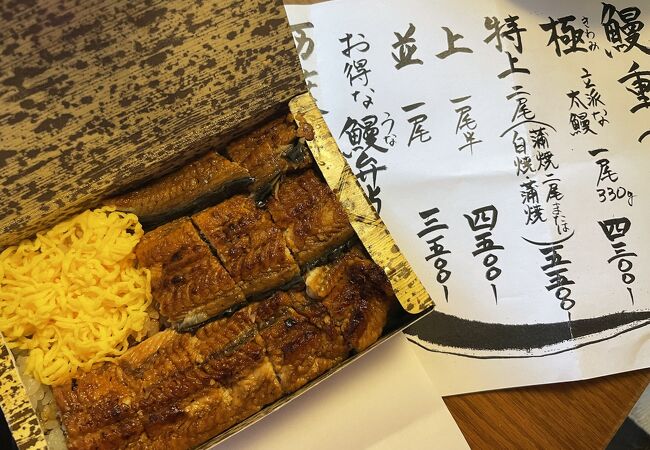 鰻重
極 きわみ
立派な
太鰻
一尾
330g
四三〇〇-
特上
二尾
(蒲焼二尾または
白焼・蒲焼)
五五〇〇-
上
一尾半
四五〇〇-
並
一尾
三五〇〇-
お得な鰻弁当
うな